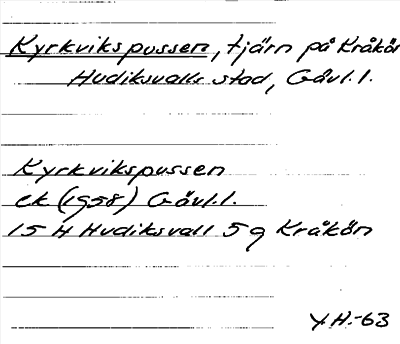 Kyrkvikspussen, tjärn på Kråkön
Hudiksvalls stad, Gävl.l.
Kyrkvikspussen
ek (1958) Gävl.l.
15 H Hudiksvall 5g Kråkön
Y.H.-63